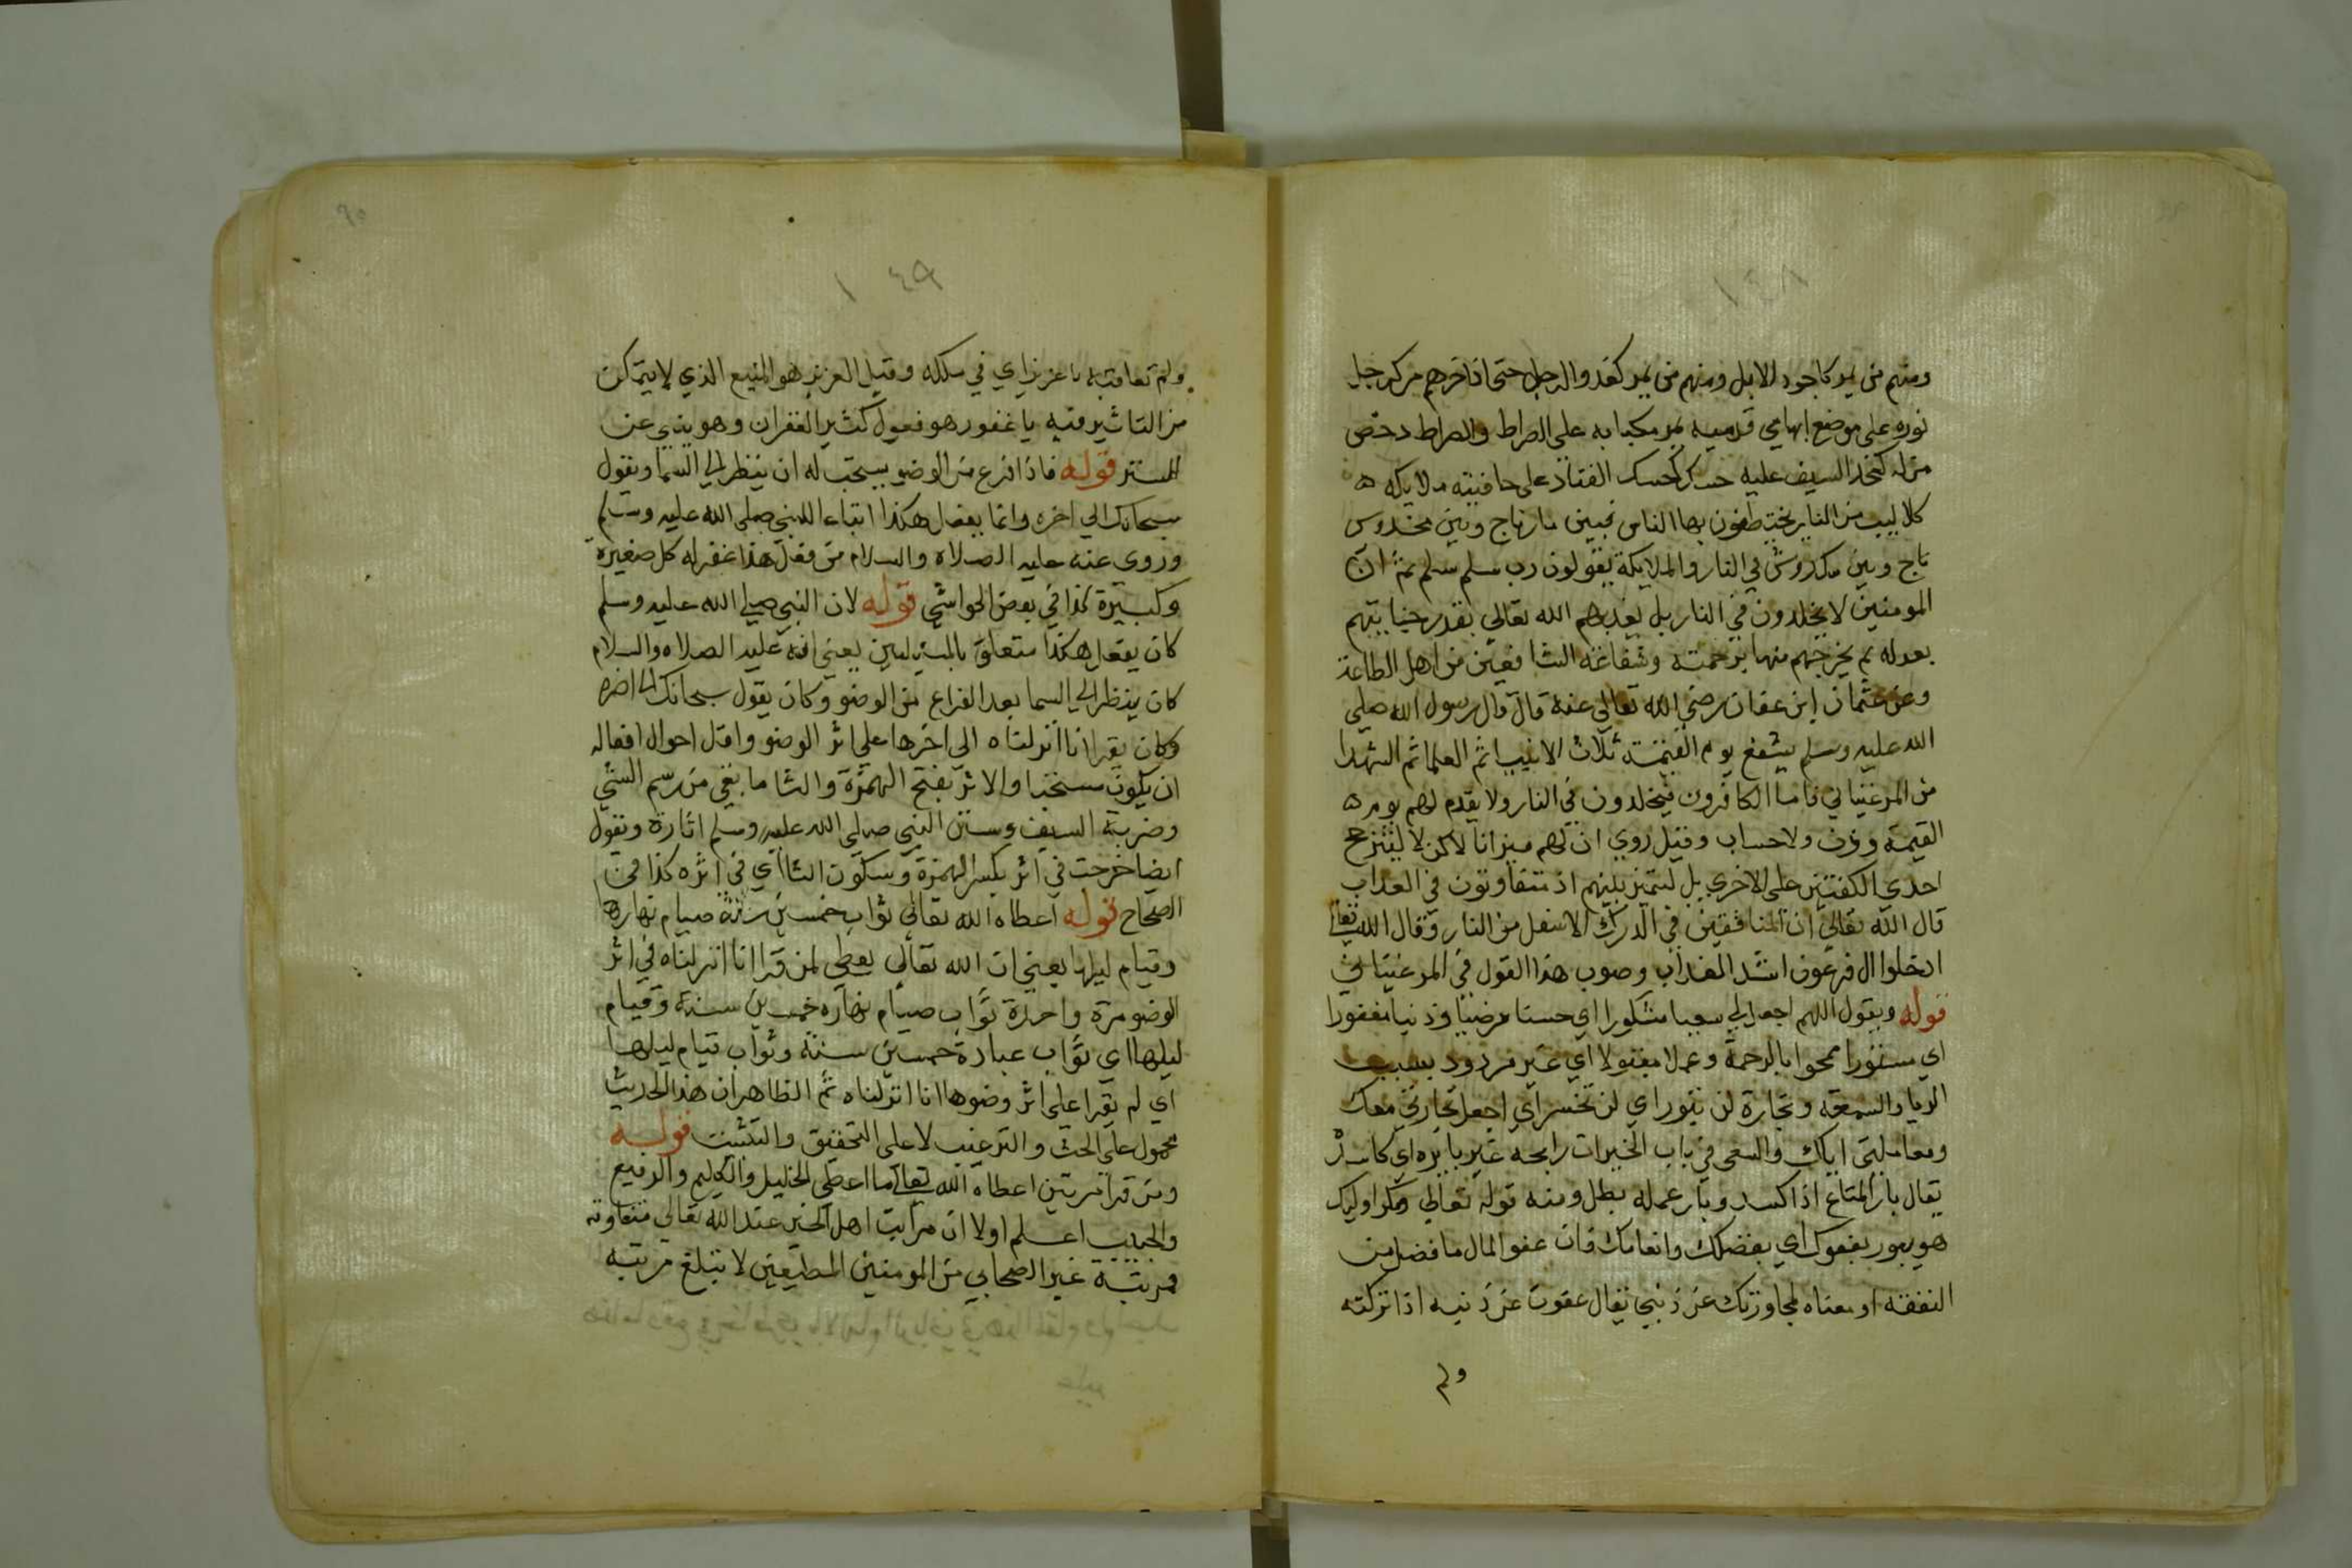 ١٤٨
ومنهم من يمر كاجود الابل ومنهم من يمر كعدو الرجل حتى ان اخرهم مر كرجل
نوره على موضع ابهامي قدميه يمر مكبا به على الصراط والصراط دحض
مزله كحد السيف عليه حسك كحسك القتاد على حافيته ملايكه
كلاليب من النار يختطفون بها الناس فبين مار ناج وبين مخدوس
ناج وبين مكدوش في النار والملايكة يقولون رب سلم سلم ثم ان
المومنين لا يخلدون في النار بل يعذبهم الله تعالي بقدر جنايتهم
بعدله ثم يخرجهم منها برحمته وشفاعة الشافعين من اهل الطاعة
وعن عثمان ابن عفان رضي الله تعالي عنه قال قال رسول الله صلي
الله عليه وسلم يشفع يوم القيمة ثلاث الانبيا ثم العلما ثم الشهدا
من المرغيناني فاما الكافرون فيخلدون في النار ولا يقدم لهم يوم
القيمة وزن ولا حساب وقيل روي ان لهم ميزانا لاكن لا ليترجح
احدي الكفتين على الاخري بل ليتميز بينهم اذ يتفاوتون في العذاب
قال الله تعالي ان المنافقين في الدرك الاسفل من النار وقال الله تعالي
ادخلوا ال فرعون اشد العذاب وصوب هذا القول في المرغيناني
قوله ويقول اللهم اجعل لي سعيا مشكورا اي حسنا مرضيا وذنبا مغفورا
اي مستورا ممحوا بالرحمة وعملا مقبولا اي غير مردود بسبب
الريا والسمعة وتجارة لن تبور اي لن تخسر اي اجعل تجارتي معك
ومعاملتي اياك والسعي في باب الخيرات رابحة غير بايره اي كاسد
يقال بار المتاع اذا كسد وبار عمله بطل ومنه قوله تعالي ومكر اوليك
هو يبور بعفوك اي بفضلك وانعامك فان عفو المال ما فضل من
النفقه او معناه لمجاوزتك عن ذنبي يقال عفوت عن ذنبه اذا تركته
ولم
٩٥
١٤٩
ولم تعاقبه يا عزيز اي في ملكه وقيل العزيز هو المنيع الذي لا يتمكن
من التاثير فيه يا غفور هو فعول كثير الغفران وهو ينبي عن
الستر قوله فاذا فرغ من الوضو يستحب له ان ينظر الي السما ويقول
سبحانك الي اخره وانما يفعل هكذا اتباعا للنبي صلى الله عليه وسلم
وروى عنه عليه الصلاه والسلام من فعل هذا غفر له كل صغيرة
وكبيرة كذا في بعض الحواشي قوله لان النبي صلى الله عليه وسلم
كان يفعل هكذا متعلق بالمسئلتين يعني انه عليه الصلاه والسلام
كان ينظر الي السما بعد الفراغ من الوضو وكان يقول سبحانك الى اخره
وكان يقرا انا انزلناه الى اخرها على اثر الوضو واقل احوال افعاله
ان يكون مستحبا والاثر بفتح الهمزة والثا ما بقي من رسم الشي
وضربة السيف وسنن النبي صلى الله عليه وسلم اثارة ونقول
ايضا خرجت في اثر بكسر الهمزة وسكون الثا اي في اثره كذا في
الصحاح قوله اعطاه الله تعالي ثواب خمسين سنة صيام نهارها
وقيام ليلها يعني ان الله تعالي يعطي لمن قرا انا انزلناه في اثر
الوضو مرة واحدة ثواب صيام نهاره خمسين سنة وقيام
ليلها اي ثواب عبادة خمسين سنة وثواب قيام ليلها
اي لم يقرا على اثر وضوها انا انزلناه ثم الظاهر ان هذا الحديث
محمول على الحث والترغيب لا على التحقيق والتثبت قوله
ومن قرا مرتين اعطاه الله تعالى ما اعطي الخليل والكليم والرفيع
والحبيب اعلم اولا ان مراتب اهل الخير عند الله تعالي متفاوته
فمرتبة غير الصحابي من المومنين المطيعين لا تبلغ مرتبه